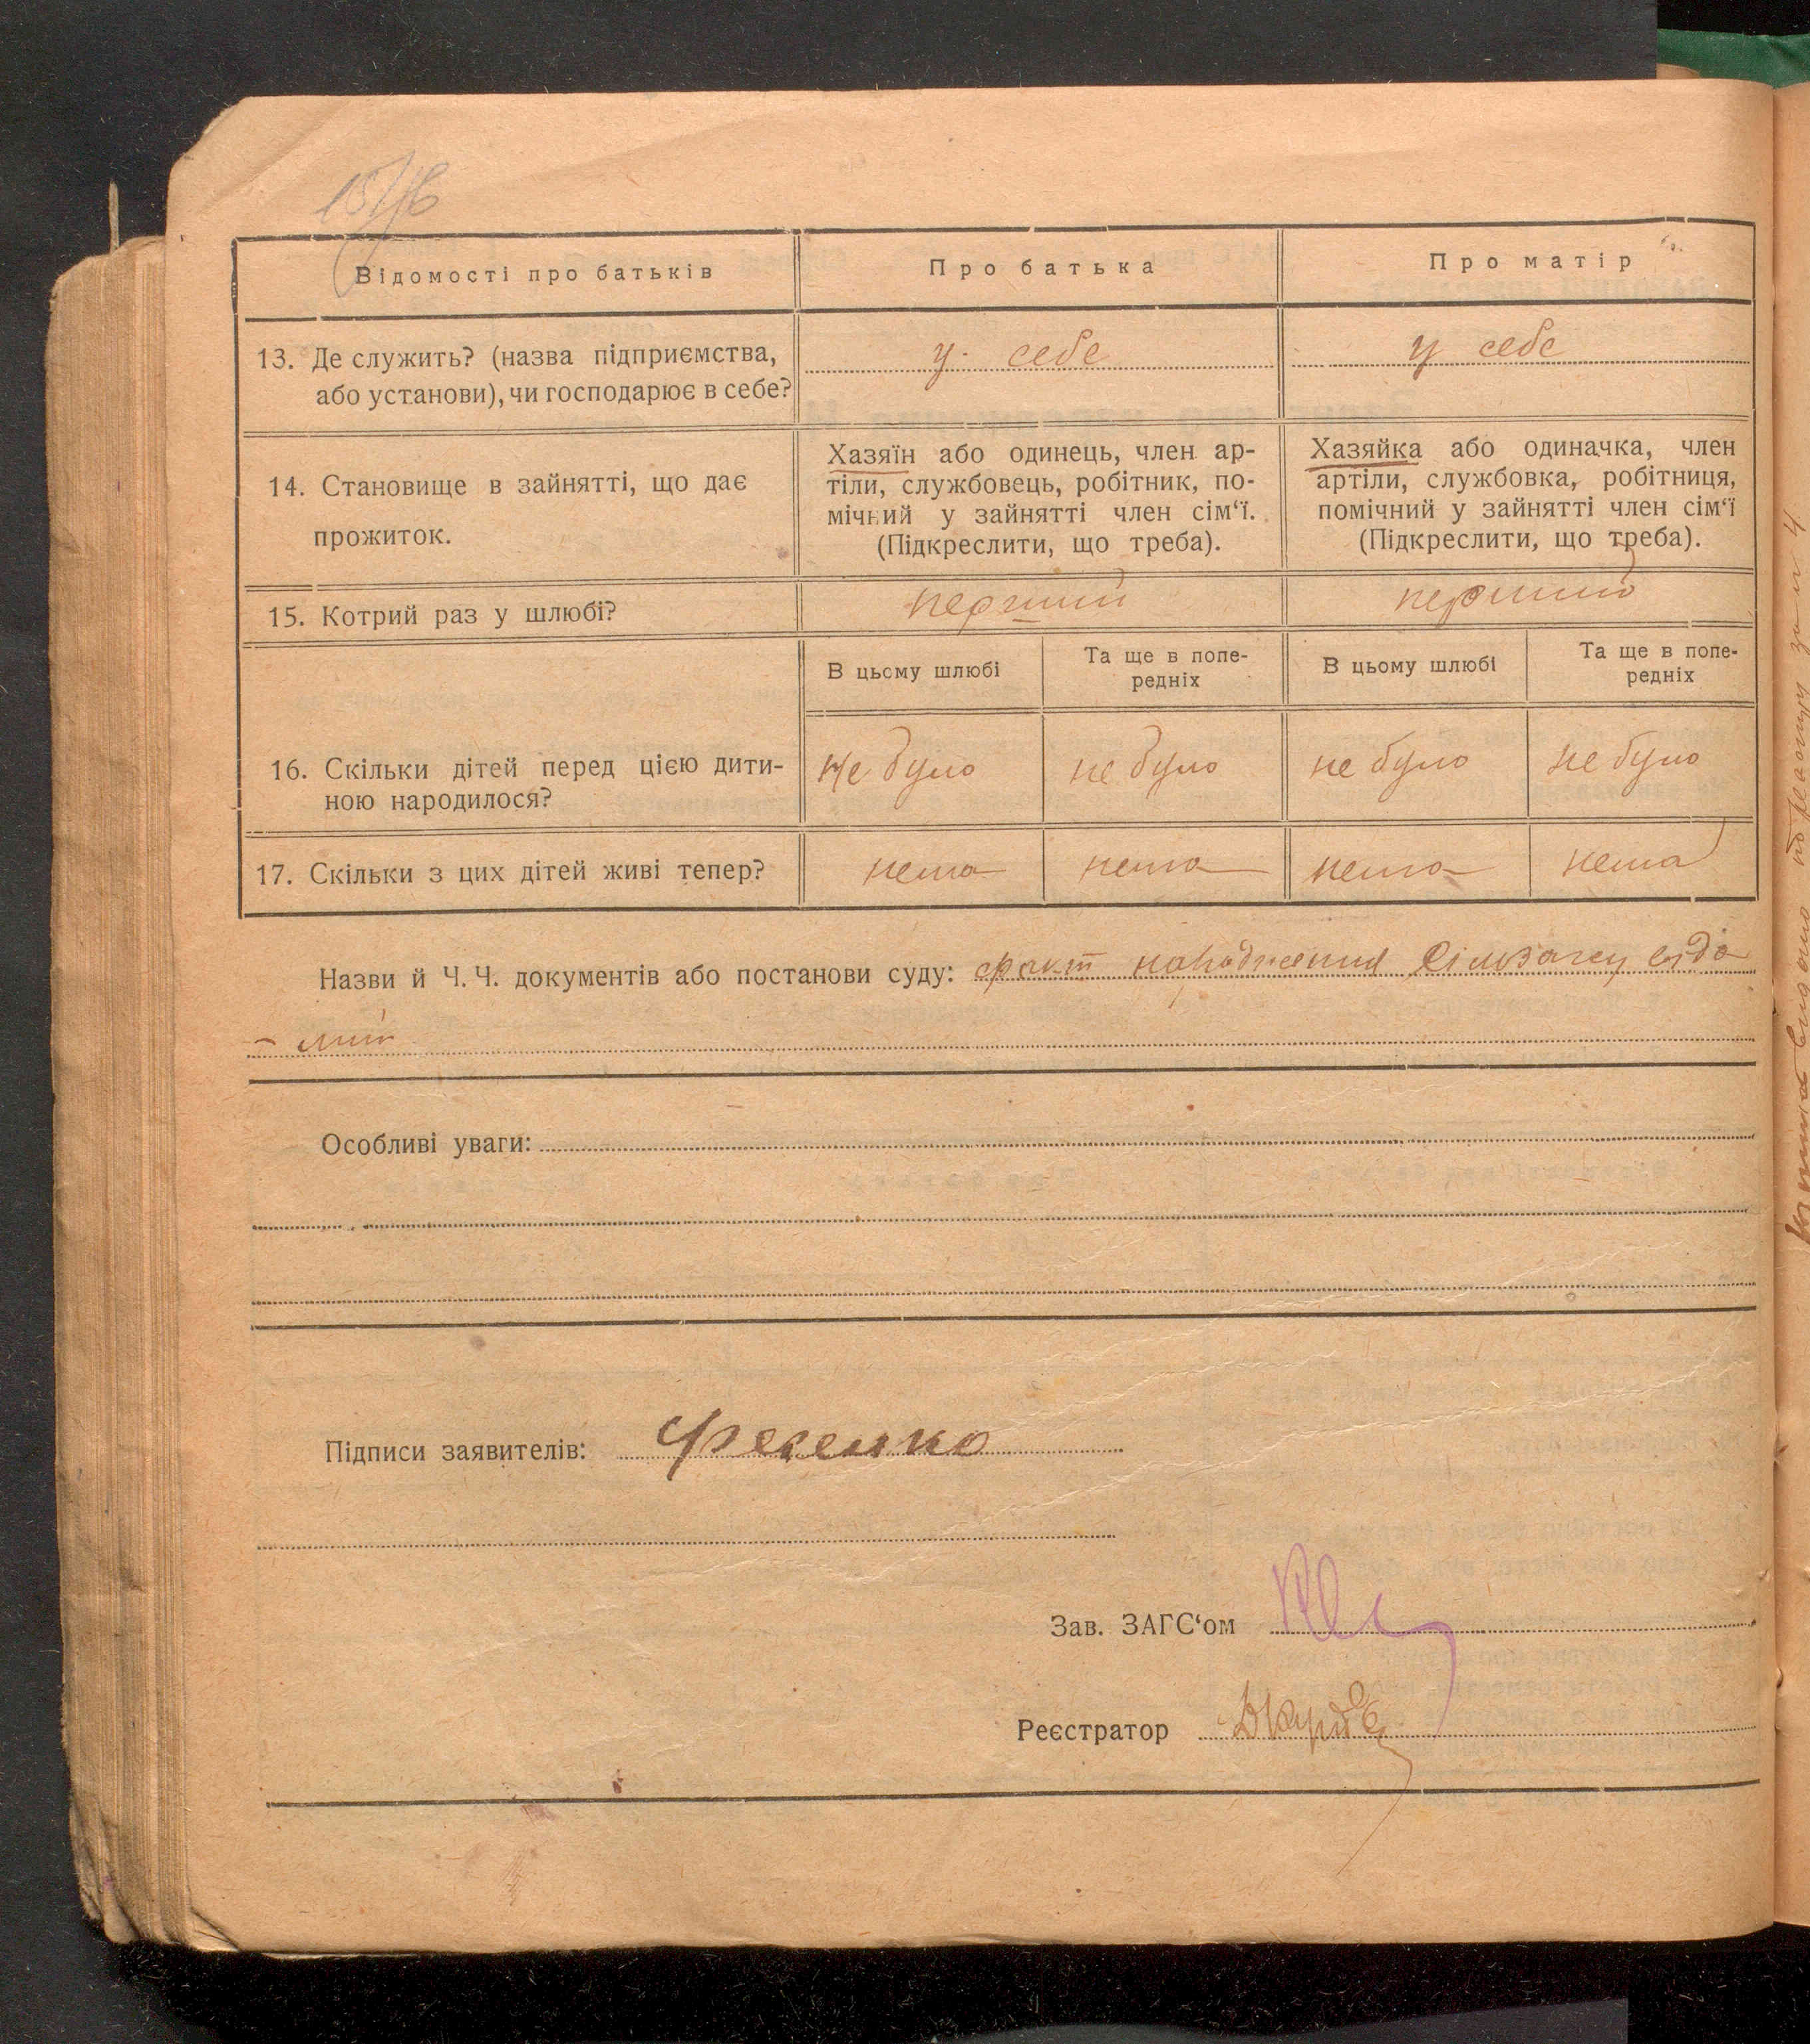 Відомості про батьків
Про батька
Про матір
13. Де служить? (назва підприємства,
або установи), чи господарює в себе?
у себе
у себе
14. Становище в зайнятті, що дає
прожиток.
Хазяїн або одинець, член ар-
тіли, службовець, робітник, по-
мічний у зайнятті член сім‘ї.
(Підкреслити, що треба).
Хазяйка або одиначка, член
артіли, службовка, робітниця,
помічний у зайнятті член сім‘ї
(Підкреслити, що треба).
15. Котрий раз у шлюбі?
перший
перший
В цьому шлюбі
Та ще в попе-
редніх
В цьому шлюбі
Та ще в попе-
редніх
16. Скільки дітей перед цією дити-
ною народилося?
не було
не було
не було
не було
17. Скільки з цих дітей живі тепер?
нема
нема
нема
нема
Назви й Ч. Ч. документів або постанови суду: факт народження
Особливі уваги:
Підписи заявителів: Фесенко
Зав. ЗАГС‘ом
Реєстратор